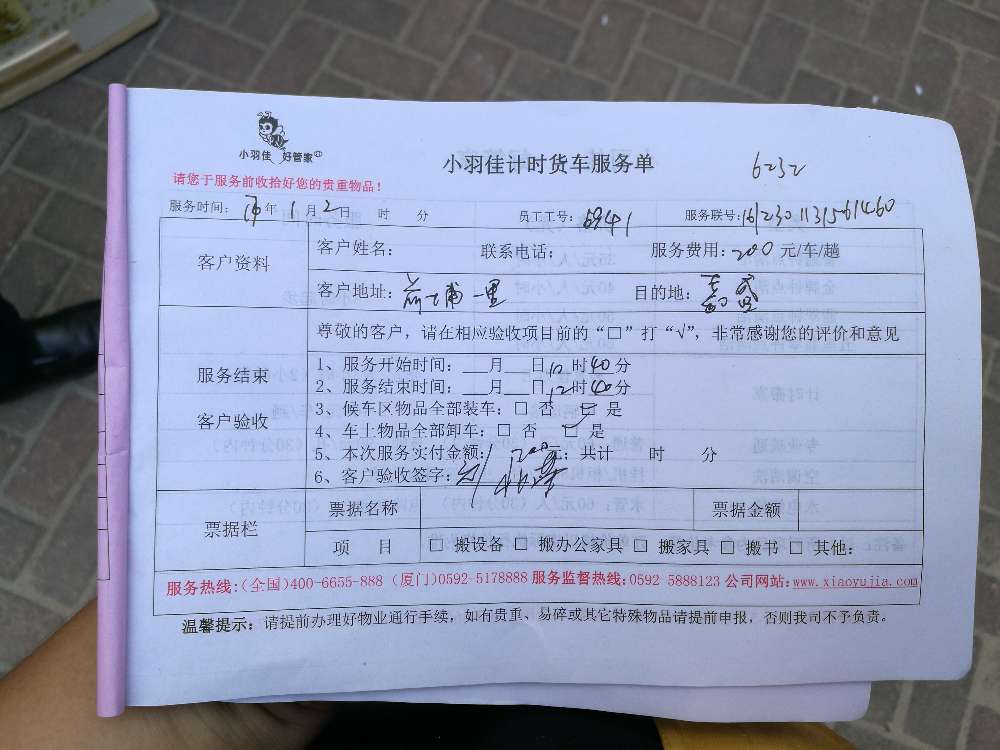 小羽佳 好管家
小羽佳计时货车服务单 6232
请您于服务前收拾好您的贵重物品！
服务时间： 年 1 月 2 日 时 分 员工工号：6941 服务联号：
客户资料
客户姓名： 联系电话： 服务费用：200 元/车/趟
客户地址：前埔一里 目的地：嘉盛
尊敬的客户，请在相应验收项目前的“□”打“√”，非常感谢您的评价和意见
服务结束
客户验收
1、服务开始时间：___月___日10时40分
2、服务结束时间：___月___日12时40分
3、候车区物品全部装车：□ 否 □ 是
4、车上物品全部卸车：□ 否 □ 是
5、本次服务实付金额： 200元；共计 时 分
6、客户验收签字：刘
票据栏
票据名称 票据金额
项 目 □ 搬设备 □ 搬办公家具 □ 搬家具 □ 搬书 □ 其他：
服务热线：(全国)400-6655-888 (厦门)0592 5178888 服务监督热线：0592 5888123 公司网站：www.xiaoyujia.com
温馨提示：请提前办理好物业通行手续，如有贵重、易碎或其它特殊物品请提前申报，否则我司不予负责。